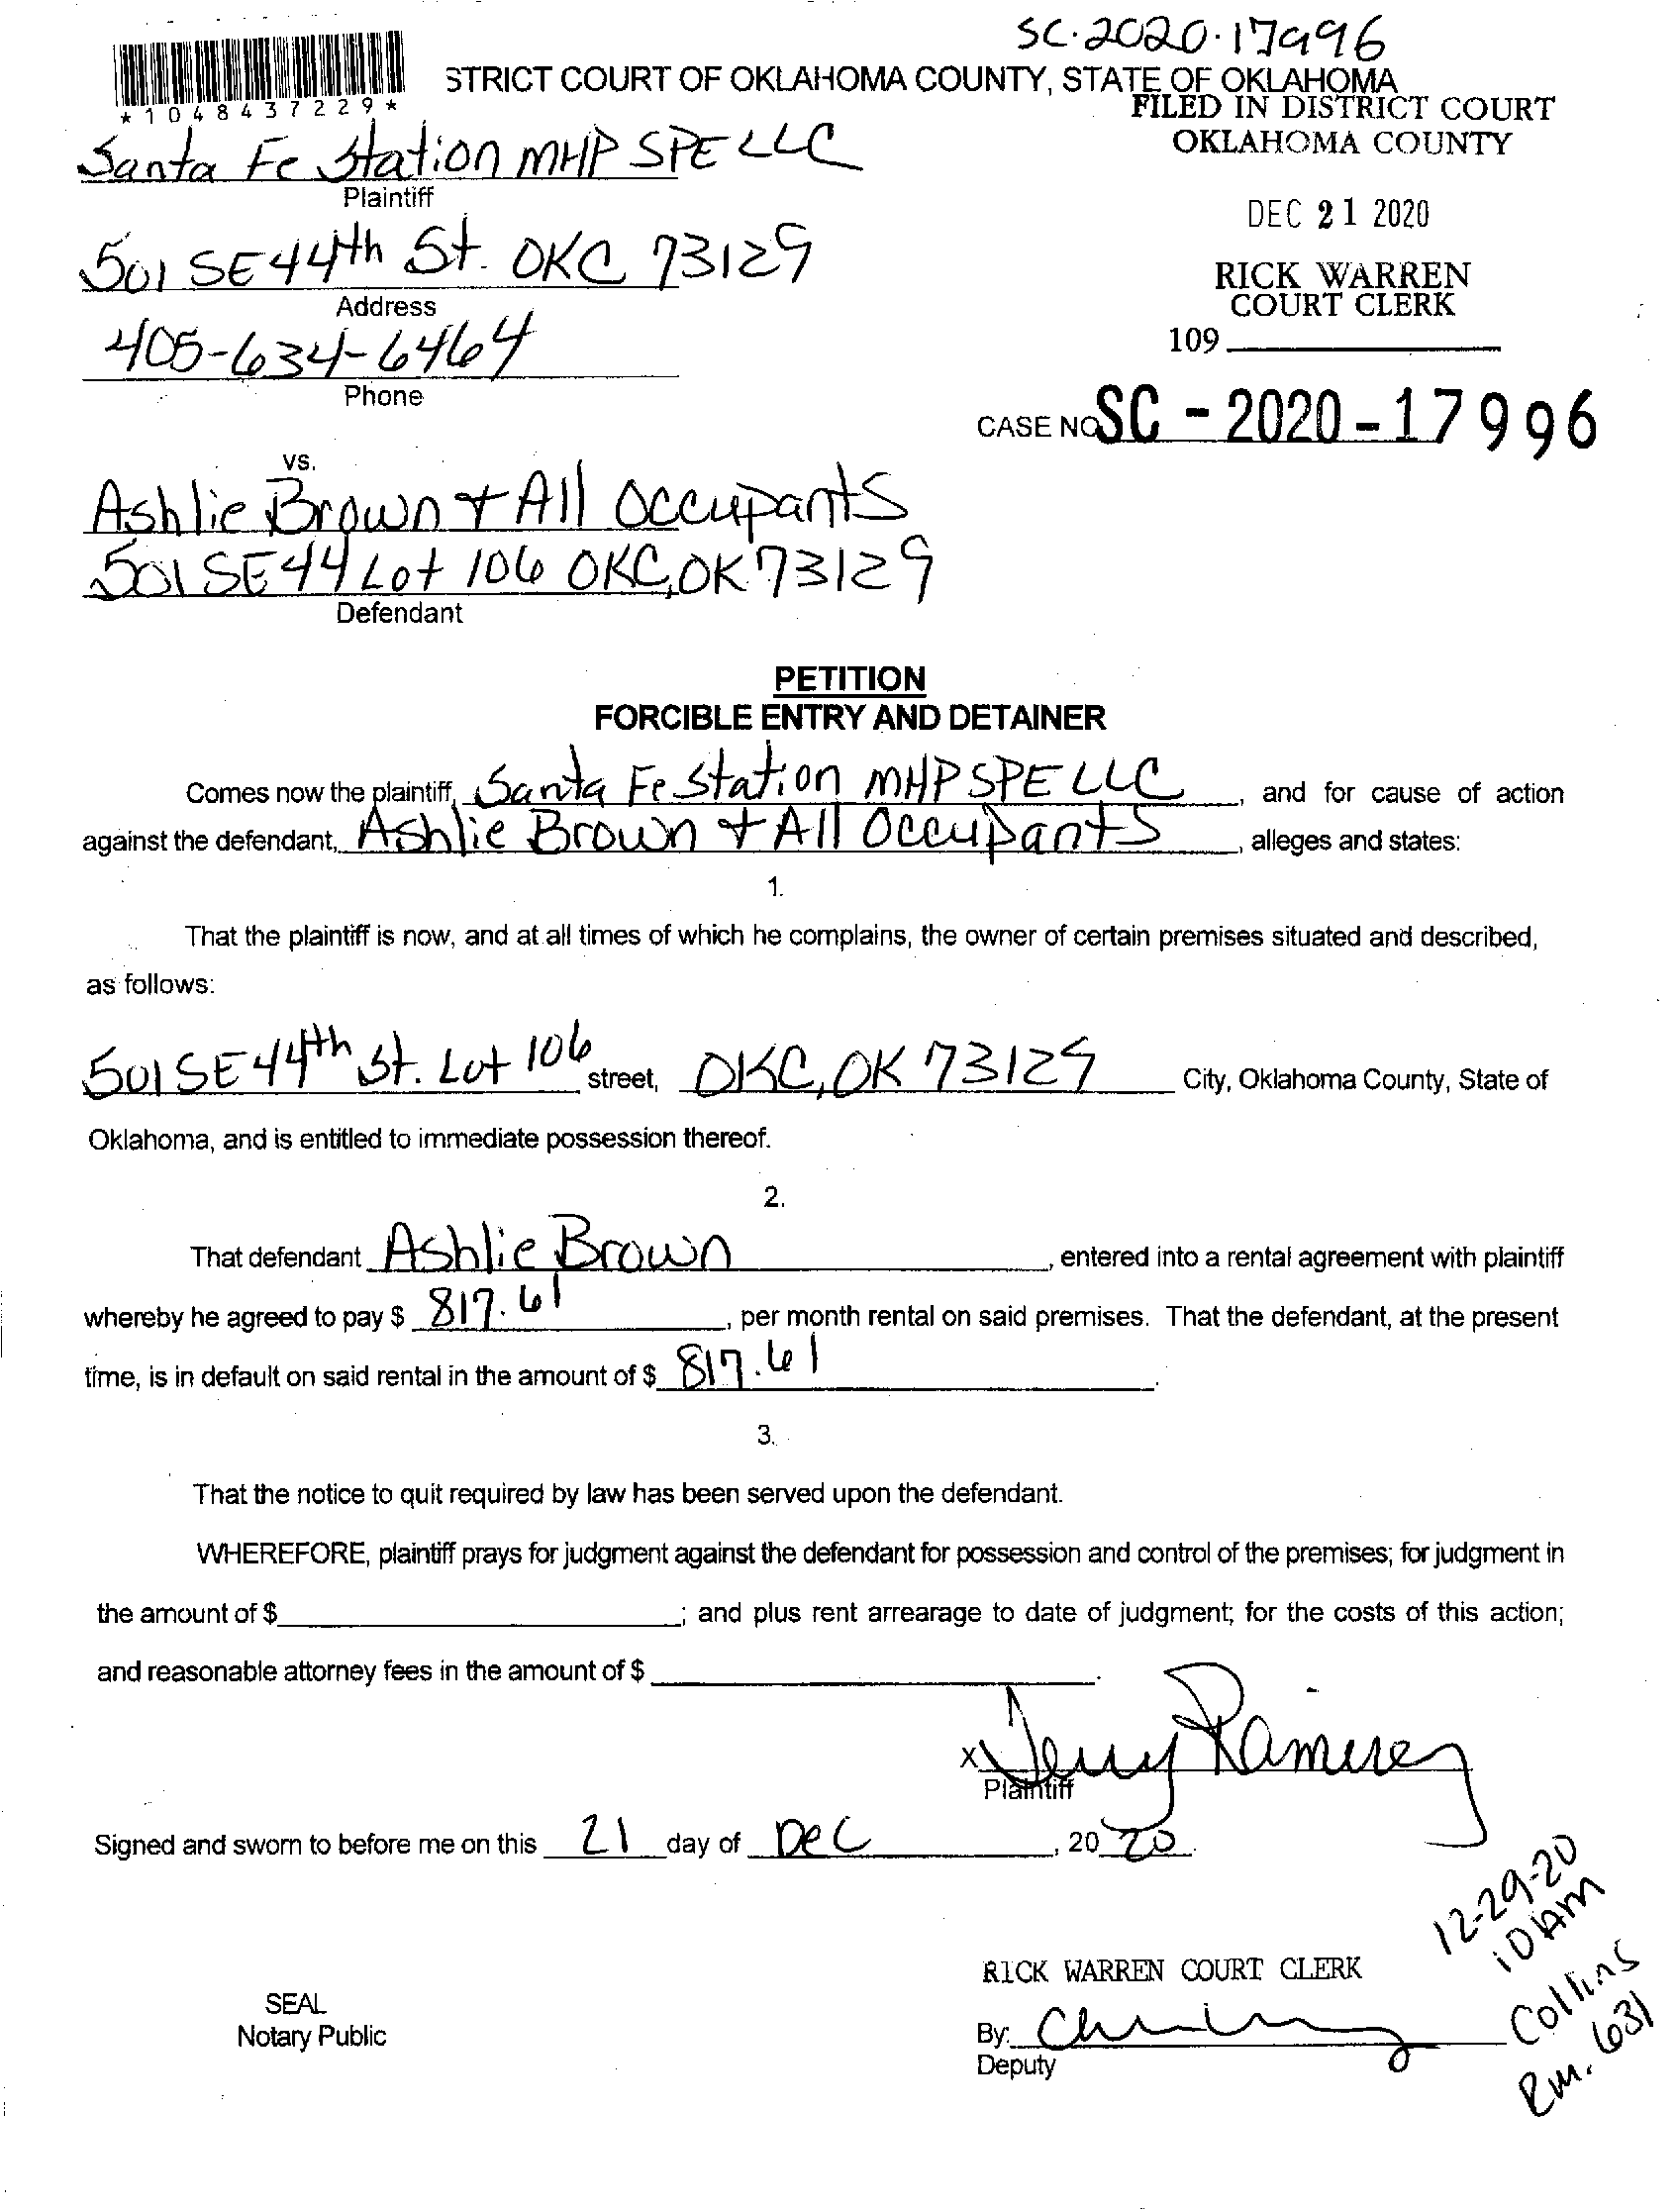 SC.2020.17996
STRICT COURT OF OKLAHOMA COUNTY, STATE OF OKLAHOMA
*1048437229*
FILED IN DISTRICT COURT
OKLAHOMA COUNTY
Santa Fe Station MHP SPE LLC
Plaintiff
DEC 21 2020
501 SE 44th St. OKC 73129
Address
RICK WARREN
COURT CLERK
405-634-6464
109
Phone
CASE NO SC - 2020 - 17996
vs.
Ashlie Brown + All Occupants
501 SE 44 Lot 106 OKC, OK 73129
Defendant
PETITION
FORCIBLE ENTRY AND DETAINER
Comes now the plaintiff, Santa Fe Station MHP SPE LLC, and for cause of action
against the defendant, Ashlie Brown + All Occupants, alleges and states:
1.
That the plaintiff is now, and at all times of which he complains, the owner of certain premises situated and described,
as follows:
501 SE 44th St. Lot 106 street, OKC, OK 73129 City, Oklahoma County, State of
Oklahoma, and is entitled to immediate possession thereof.
2.
That defendant Ashlie Brown, entered into a rental agreement with plaintiff
whereby he agreed to pay $ 817.61, per month rental on said premises. That the defendant, at the present
time, is in default on said rental in the amount of $ 817.61.
3.
That the notice to quit required by law has been served upon the defendant.
WHEREFORE, plaintiff prays for judgment against the defendant for possession and control of the premises; for judgment in
the amount of $ ; and plus rent arrearage to date of judgment; for the costs of this action;
and reasonable attorney fees in the amount of $ .
X Jerry Ramirez
Plaintiff
Signed and sworn to before me on this 21 day of Dec, 20 20.
12-29-20
10 AM
Collins
Rm. 631
RICK WARREN COURT CLERK
SEAL
Notary Public
By:
Deputy